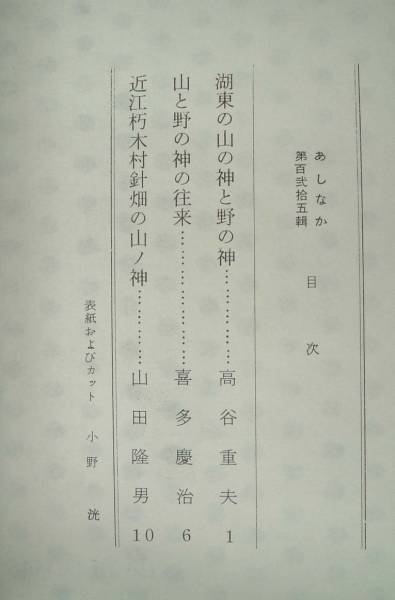 あしなか
第百弐拾五輯
目次
湖東の山の神と野の神…………… 高谷重夫 1
山と野の神の往来………………… 喜多慶治 6
近江朽木村針畑の山ノ神………… 山田隆男 10
表紙およびカット 小野 洸